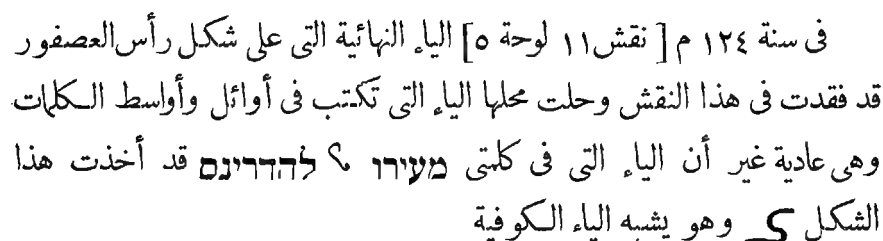 فى سنة ١٢٤ م [ نقش ١١ لوحة ٥] الياء النهائية التى على شكل رأس العصفور
قد فقدت فى هذا النقش وحلت محلها الياء التى تكتب فى أوائل وأواسط الكلمات
وهى عادية غير أن الياء التى فى كلمتى מעירו & להדרינס قد أخذت هذا
الشكل وهو يشبه الياء الكوفية